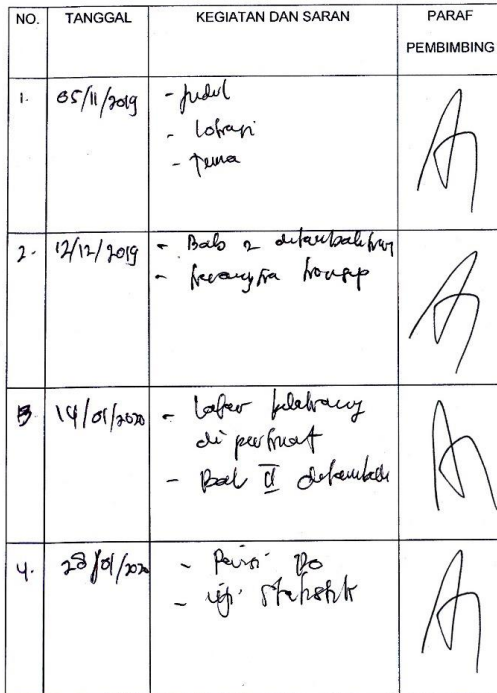 NO. TANGGAL KEGIATAN DAN SARAN PARAF PEMBIMBING
1. 05/11/2019 - Judul
- Lokasi
- Tema
2. 12/12/2019 - Bab 2 ditambahkan
- kerangka konsep
3 14/01/2020 - Latar belakang
di perkuat
- Bab II ditambah
4. 28/01/2020 - Revisi DO
- uji statistik